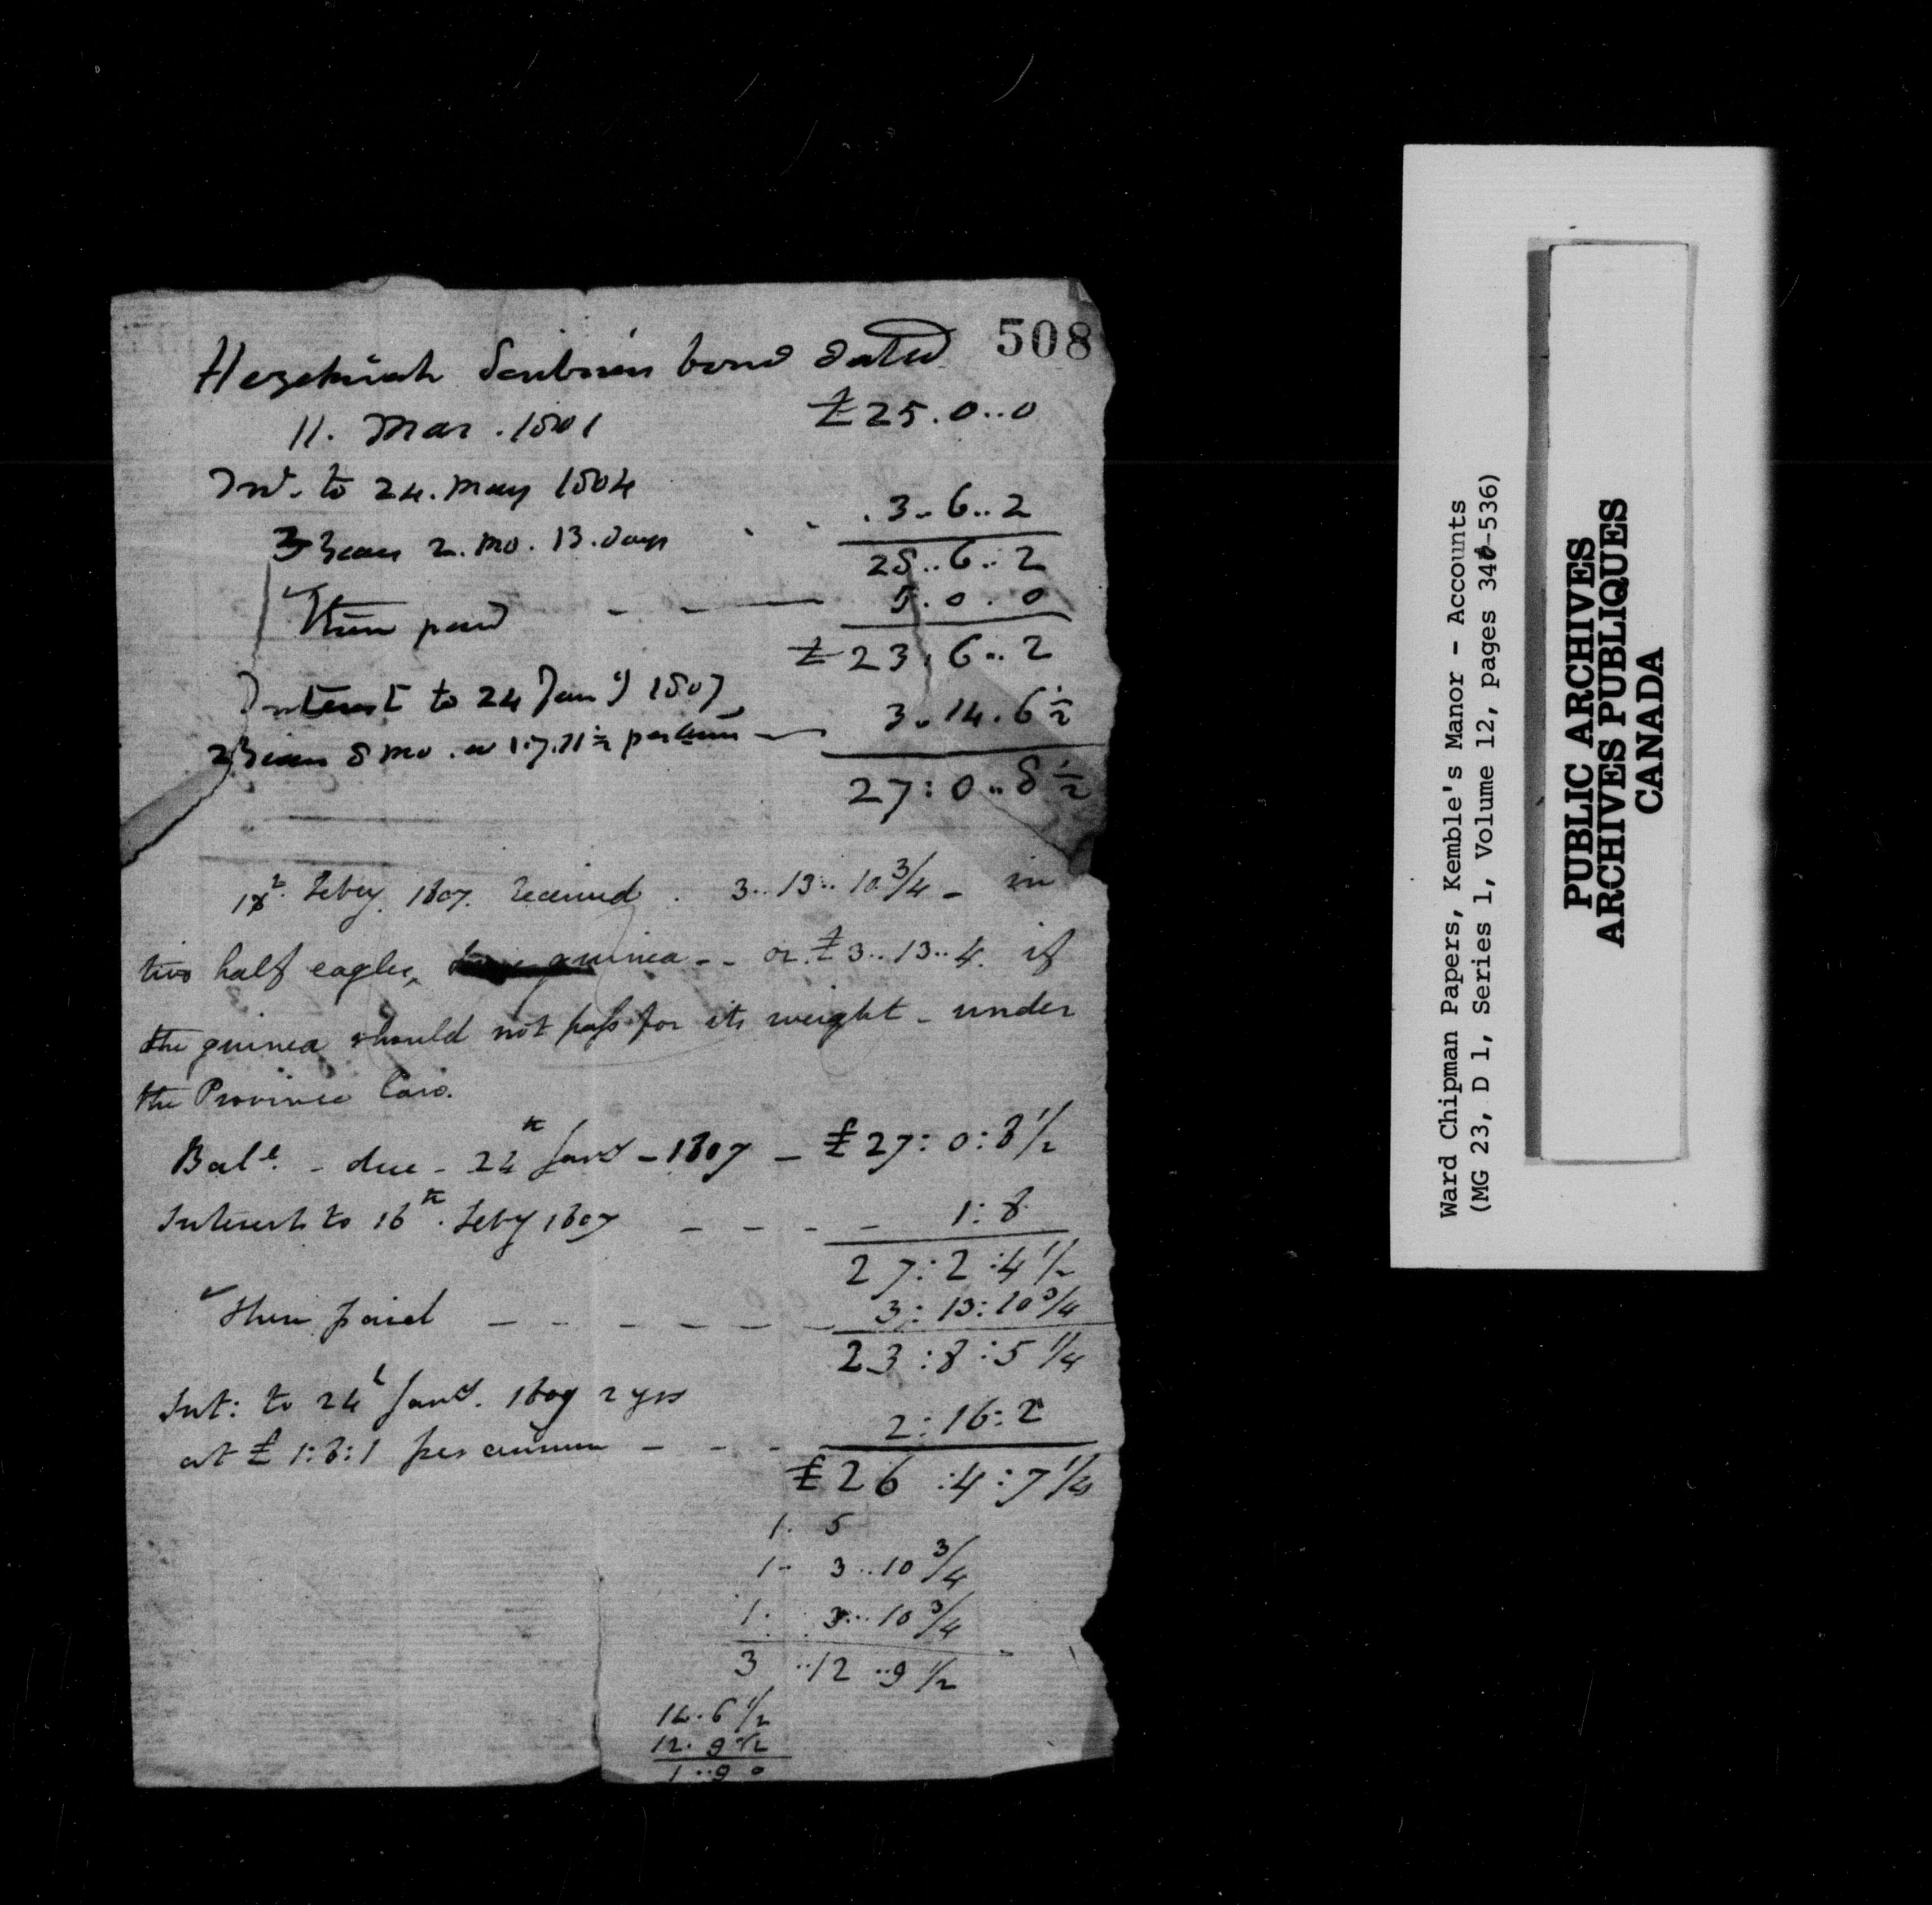 508
Hezekiah Scribner's bond dated
11. Mar. 1801 £25.0..0
Int. to 24. May 1804
3 Years 2. mo. 13. days - - 3..6..2
28..6..2
Then paid - - — 5.0.0
£23.6..2
Interest to 24 Jany 1807
2 Years 8 mo. a 1.7.11½ per Ann — 3.14.6½
27:0..8½
Feby. 1807. received. 3..13..10¾ - in
two half eagles, guinea - - or £3..13..4. if
the guinea should not pass for its weight - under
the Province Law.
Bale. - due - 24th Jany - 1807 - £27:0:8½
Interest to 16th. Feby 1807 - - - - 1:8
27:2:4½
Then paid - - - - - - 3:13:10¾
23:8:5¼
Int: to 24th Jany. 1809 2 yrs
at £1:8:1 per annum - - - 2:16:2
£26:4:7¼
1. 5
1- 3..10¾
1. 3..10¾
3..12..9½
14.6½
12.9½
1..9 0
Ward Chipman Papers, Kemble's Manor - Accounts
(MG 23, D 1, Series 1, Volume 12, pages 346-536)
PUBLIC ARCHIVES
ARCHIVES PUBLIQUES
CANADA